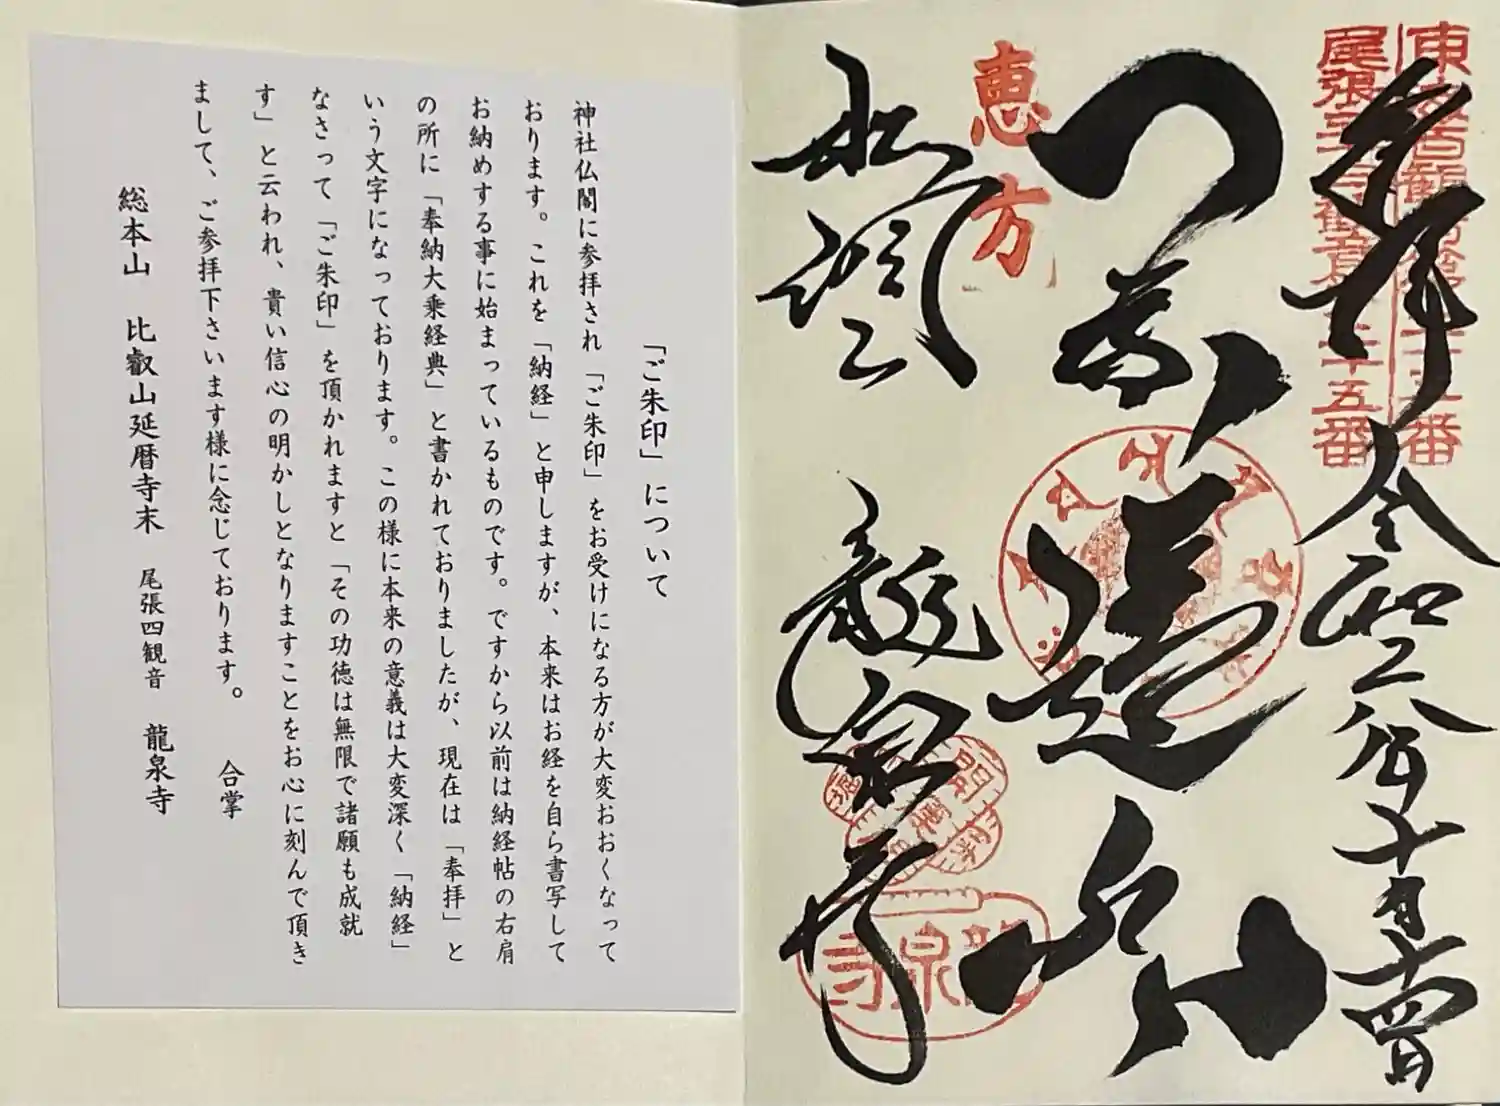 東海百観音第二十五番
尾張三十三観音第二十五番
奉拝
令和二年十月二十四日
恵方
松洞山
龍泉寺
龍泉寺
「ご朱印」について
神社仏閣に参拝され「ご朱印」をお受けになる方が大変おおくなって
おります。これを「納経」と申しますが、本来はお経を自ら書写して
お納めする事に始まっているものです。ですから以前は納経帖の右肩
の所に「奉納大乗経典」と書かれておりましたが、現在は「奉拝」と
いう文字になっております。この様に本来の意義は大変深く「納経」
なさって「ご朱印」を頂かれますと「その功徳は無限で諸願も成就
す」と云われ、貴い信心の明かしとなりますことをお心に刻んで頂き
まして、ご参拝下さいます様に念じております。 合掌
総本山 比叡山延暦寺末 尾張四観音 龍泉寺